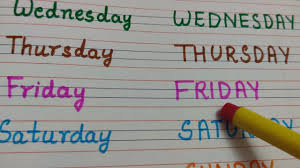 Wednesday WEDNESDAY
Thursday THURSDAY
Friday FRIDAY
Saturday